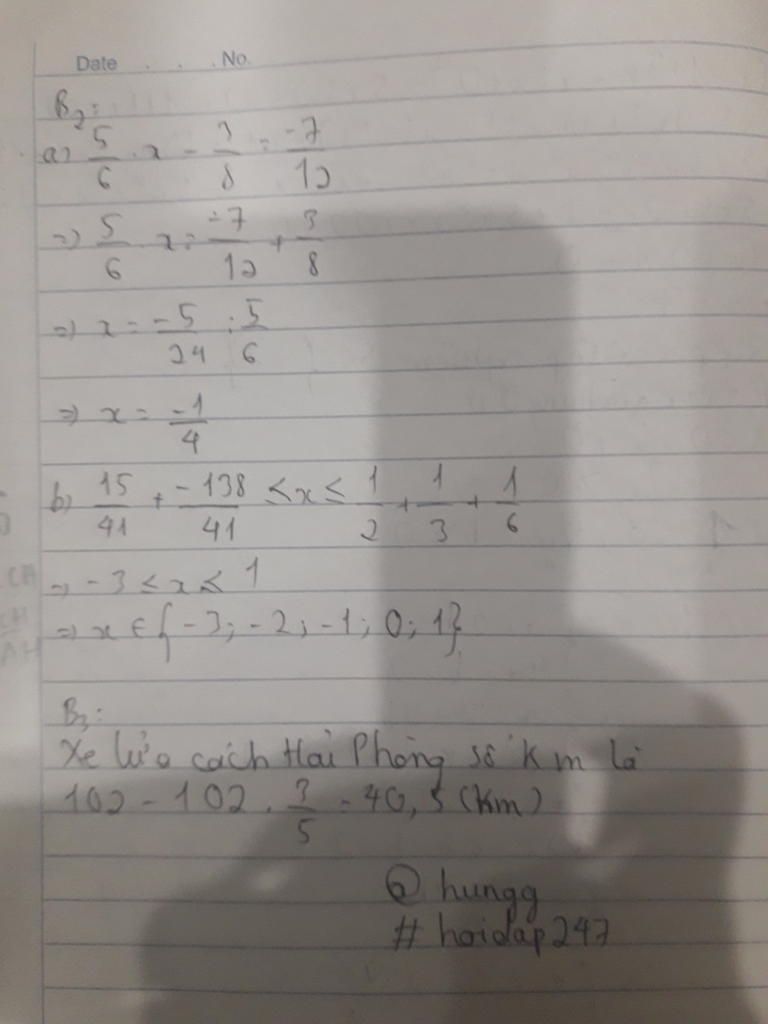 Date . . . No.
B2:
a) 5/6 . x - 3/8 = -7/12
=) 5/6 x = -7/12 + 3/8
=) x = -5/24 : 5/6
=) x = -1/4
b) 15/41 + -138/41 ≤ x ≤ 1/2 + 1/3 + 1/6
=) -3 ≤ x ≤ 1
=) x ∈ {-3; -2; -1; 0; 1}
B3:
Xe lửa cách Hải Phòng số km là
102 - 102 . 3/5 = 40,5 (km)
@ hungg
# hoidap247